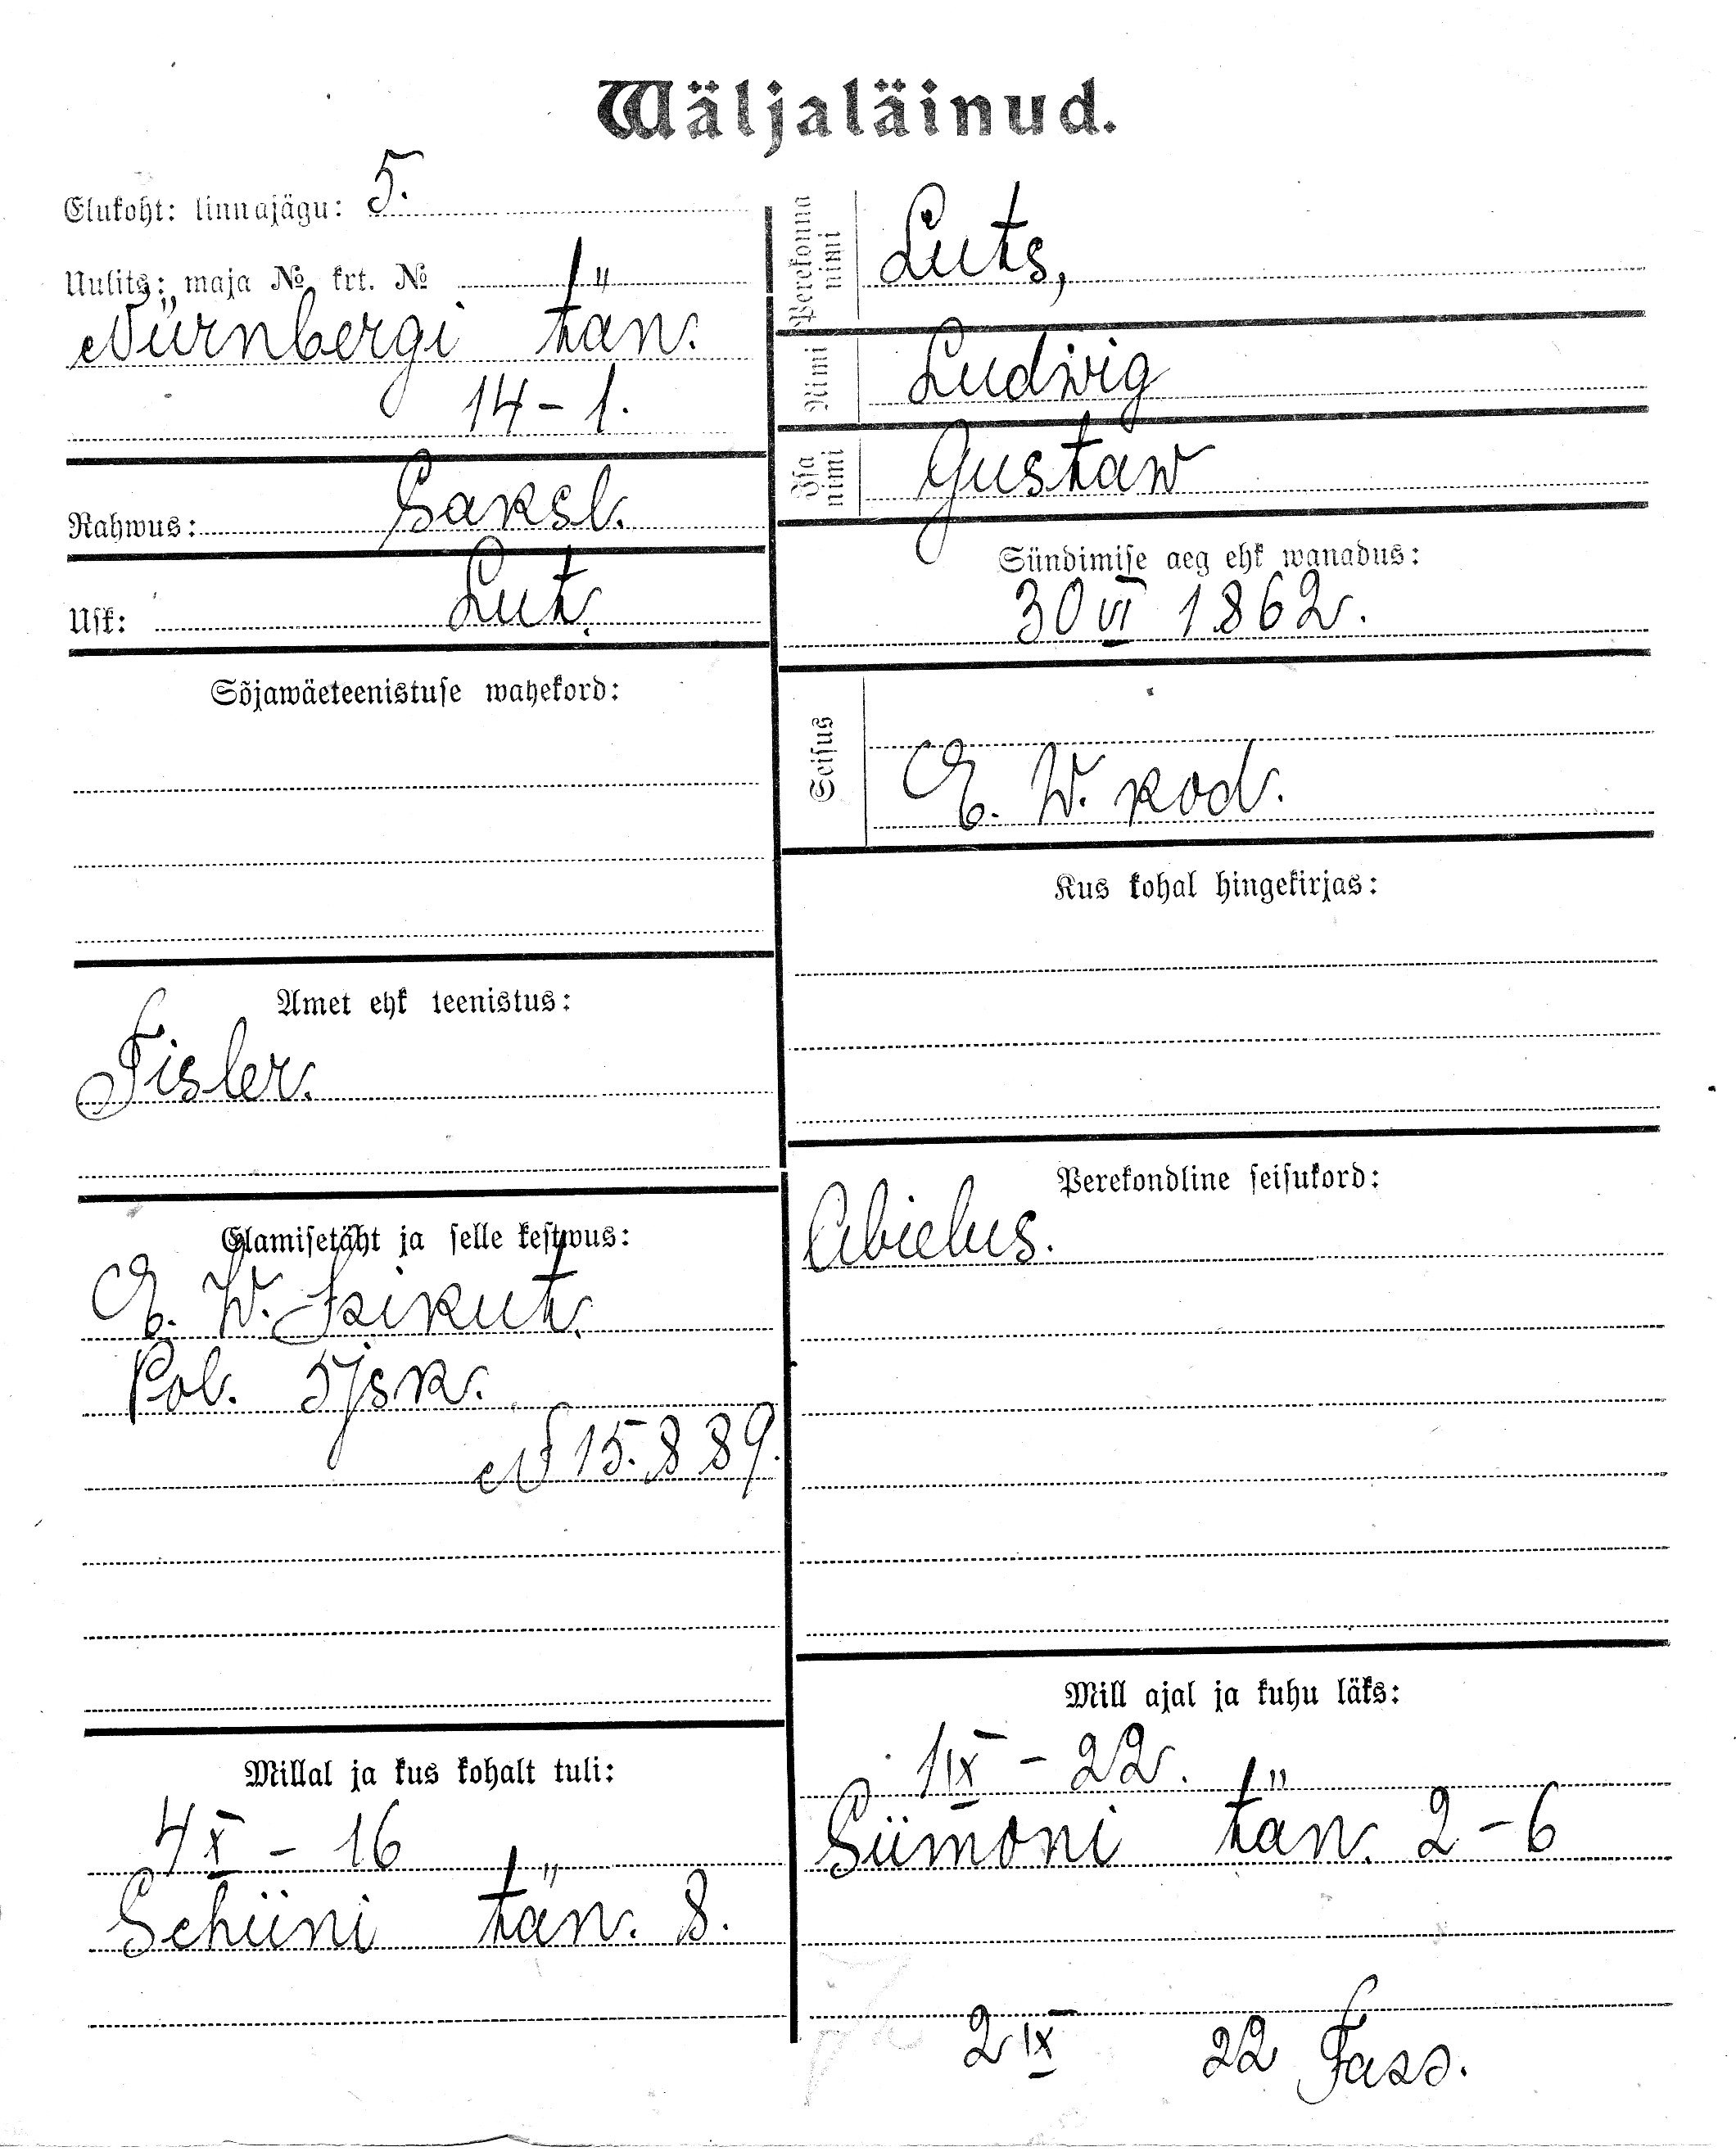 Wäljaläinud.
Elukoht: linnajägu: 5.
Uulits: maja № krt. №
Nürnbergi tän.
14-1.
Rahwus: Saksl.
Usk: Lut.
Sõjawäeteenistuse wahekord:
Amet ehk teenistus:
Tisler.
Elamisetäht ja selle kestwus:
E. W. Isikut.
Pol. 5 jsk.
№ 15.889.
Millal ja kus kohalt tuli:
4 X - 16
Schüni tän. 8.
Perekonna nimi Luts,
Nimi Ludwig
Isa nimi Gustaw
Sündimise aeg ehk wanadus:
30 VI 1862.
Seisus
E. W. kod.
Kus kohal hingekirjas:
Perekondline seisukord:
Abielus.
Mill ajal ja kuhu läks:
1 IX - 22.
Siimoni tän. 2-6
2 IX 22